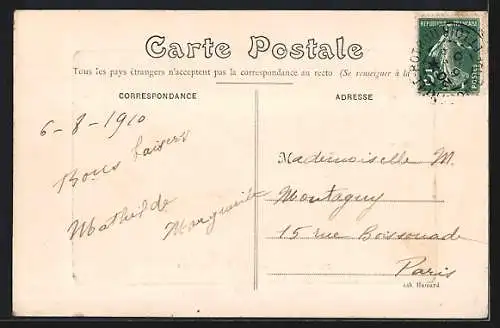 Carte Postale
Tous les pays étrangers n'acceptent pas la correspondance au recto. (Se renseigner à la
CORRESPONDANCE
ADRESSE
6-8-1910
Bons baisers
Mathilde Marguerite
Mademoiselle M.
Montaguy
15 rue Boissonade
Paris
REPUBLIQUE FRANÇAISE
POSTES